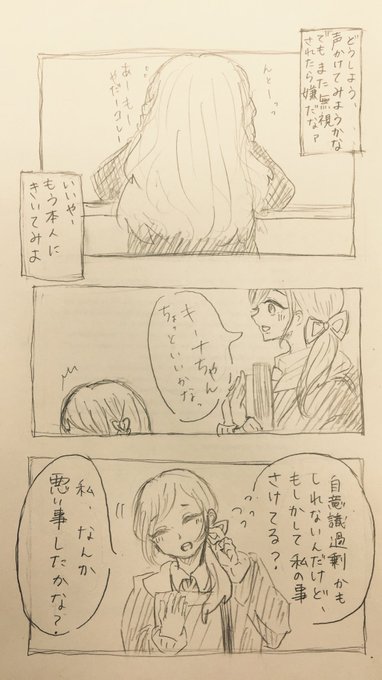 どうしよう、
声かけてみようかな
でもまた無視
されたら嫌だな?
んとーっっ
あーもー
やだークレー
いいや、
もう本人に
きいてみよ
キーナちゃん
ちょっといいかなっ
自意識過剰かも
しれないんだけど、
もしかして私の事
さけてる?
私、なんか
悪い事したかな?